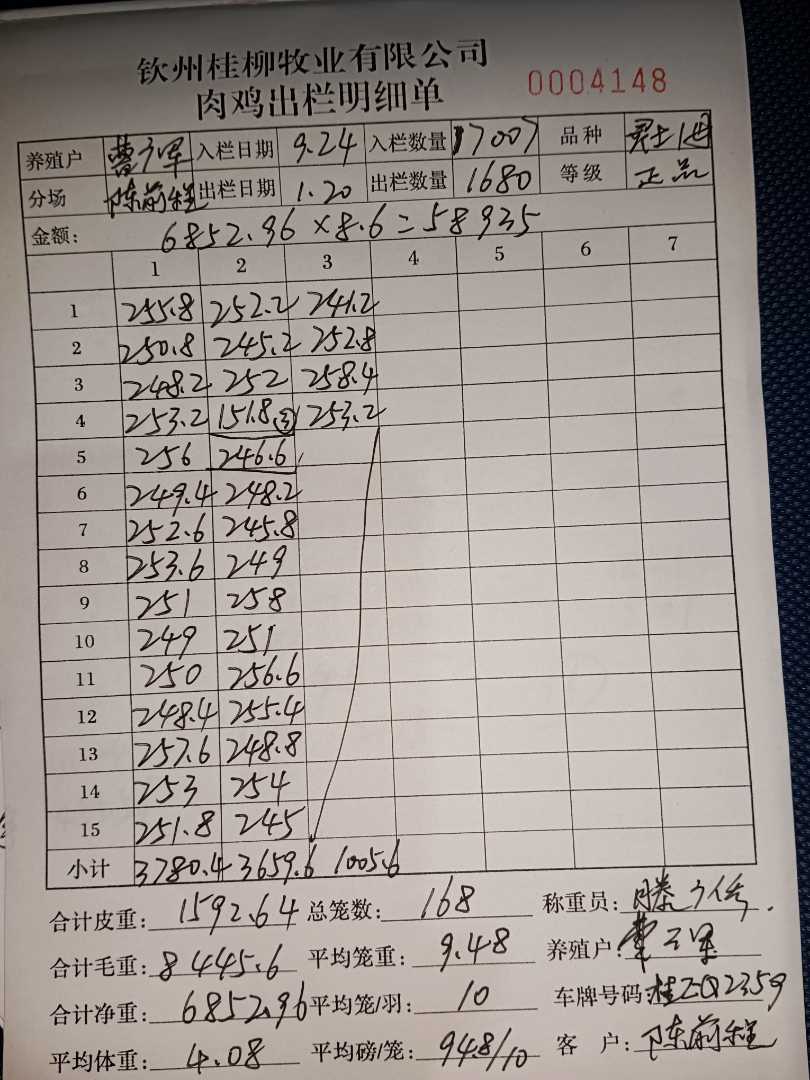 钦州桂柳牧业有限公司
肉鸡出栏明细单 0004148
养殖户 入栏日期 9.24 入栏数量 17007 品种
分场 陈前程 出栏日期 1.20 出栏数量 1680 等级 正品
金额: 6852.96×8.6=58935
1 2 3 4 5 6 7
1 255.8 252.2 241.2
2 250.8 245.2 252.8
3 248.2 252 258.4
4 253.2 151.8③ 253.2
5 256 246.6
6 249.4 248.2
7 252.6 245.8
8 253.6 249
9 251 258
10 249 251
11 250 256.6
12 248.4 255.4
13 257.6 248.8
14 253 254
15 251.8 245
小计 3780.4 3659.6 1005.6
合计皮重: 1592.64 总笼数: 168 称重员:
合计毛重: 8445.6 平均笼重: 9.48 养殖户:
合计净重: 6852.96 平均笼/羽: 10 车牌号码: 桂ZQ2359
平均体重: 4.08 平均磅/笼: 94.8/10 客户: 陈前程